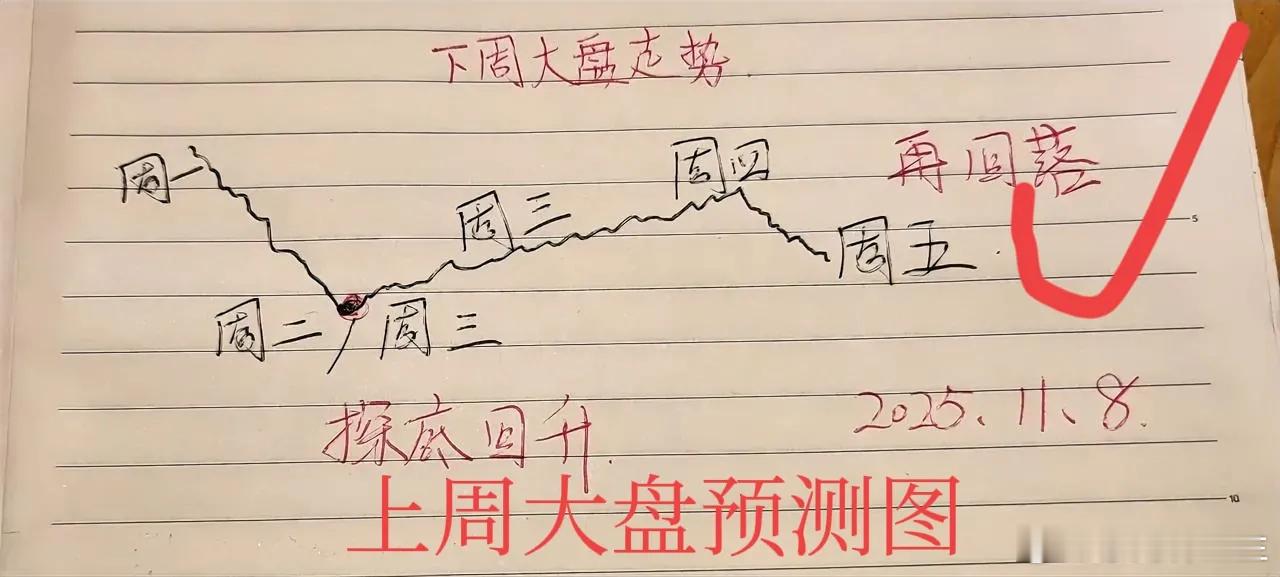 下周大盘走势
周一
周四
再回落
周三
周五
周二/周三
探底回升
2025.11.8.
上周大盘预测图
5
10